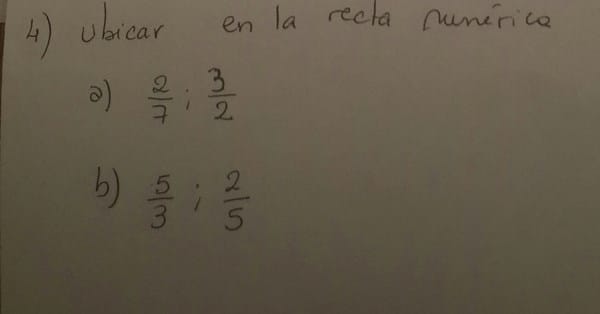 4) ubicar en la recta numérica
a) 2/7 ; 3/2
b) 5/3 ; 2/5